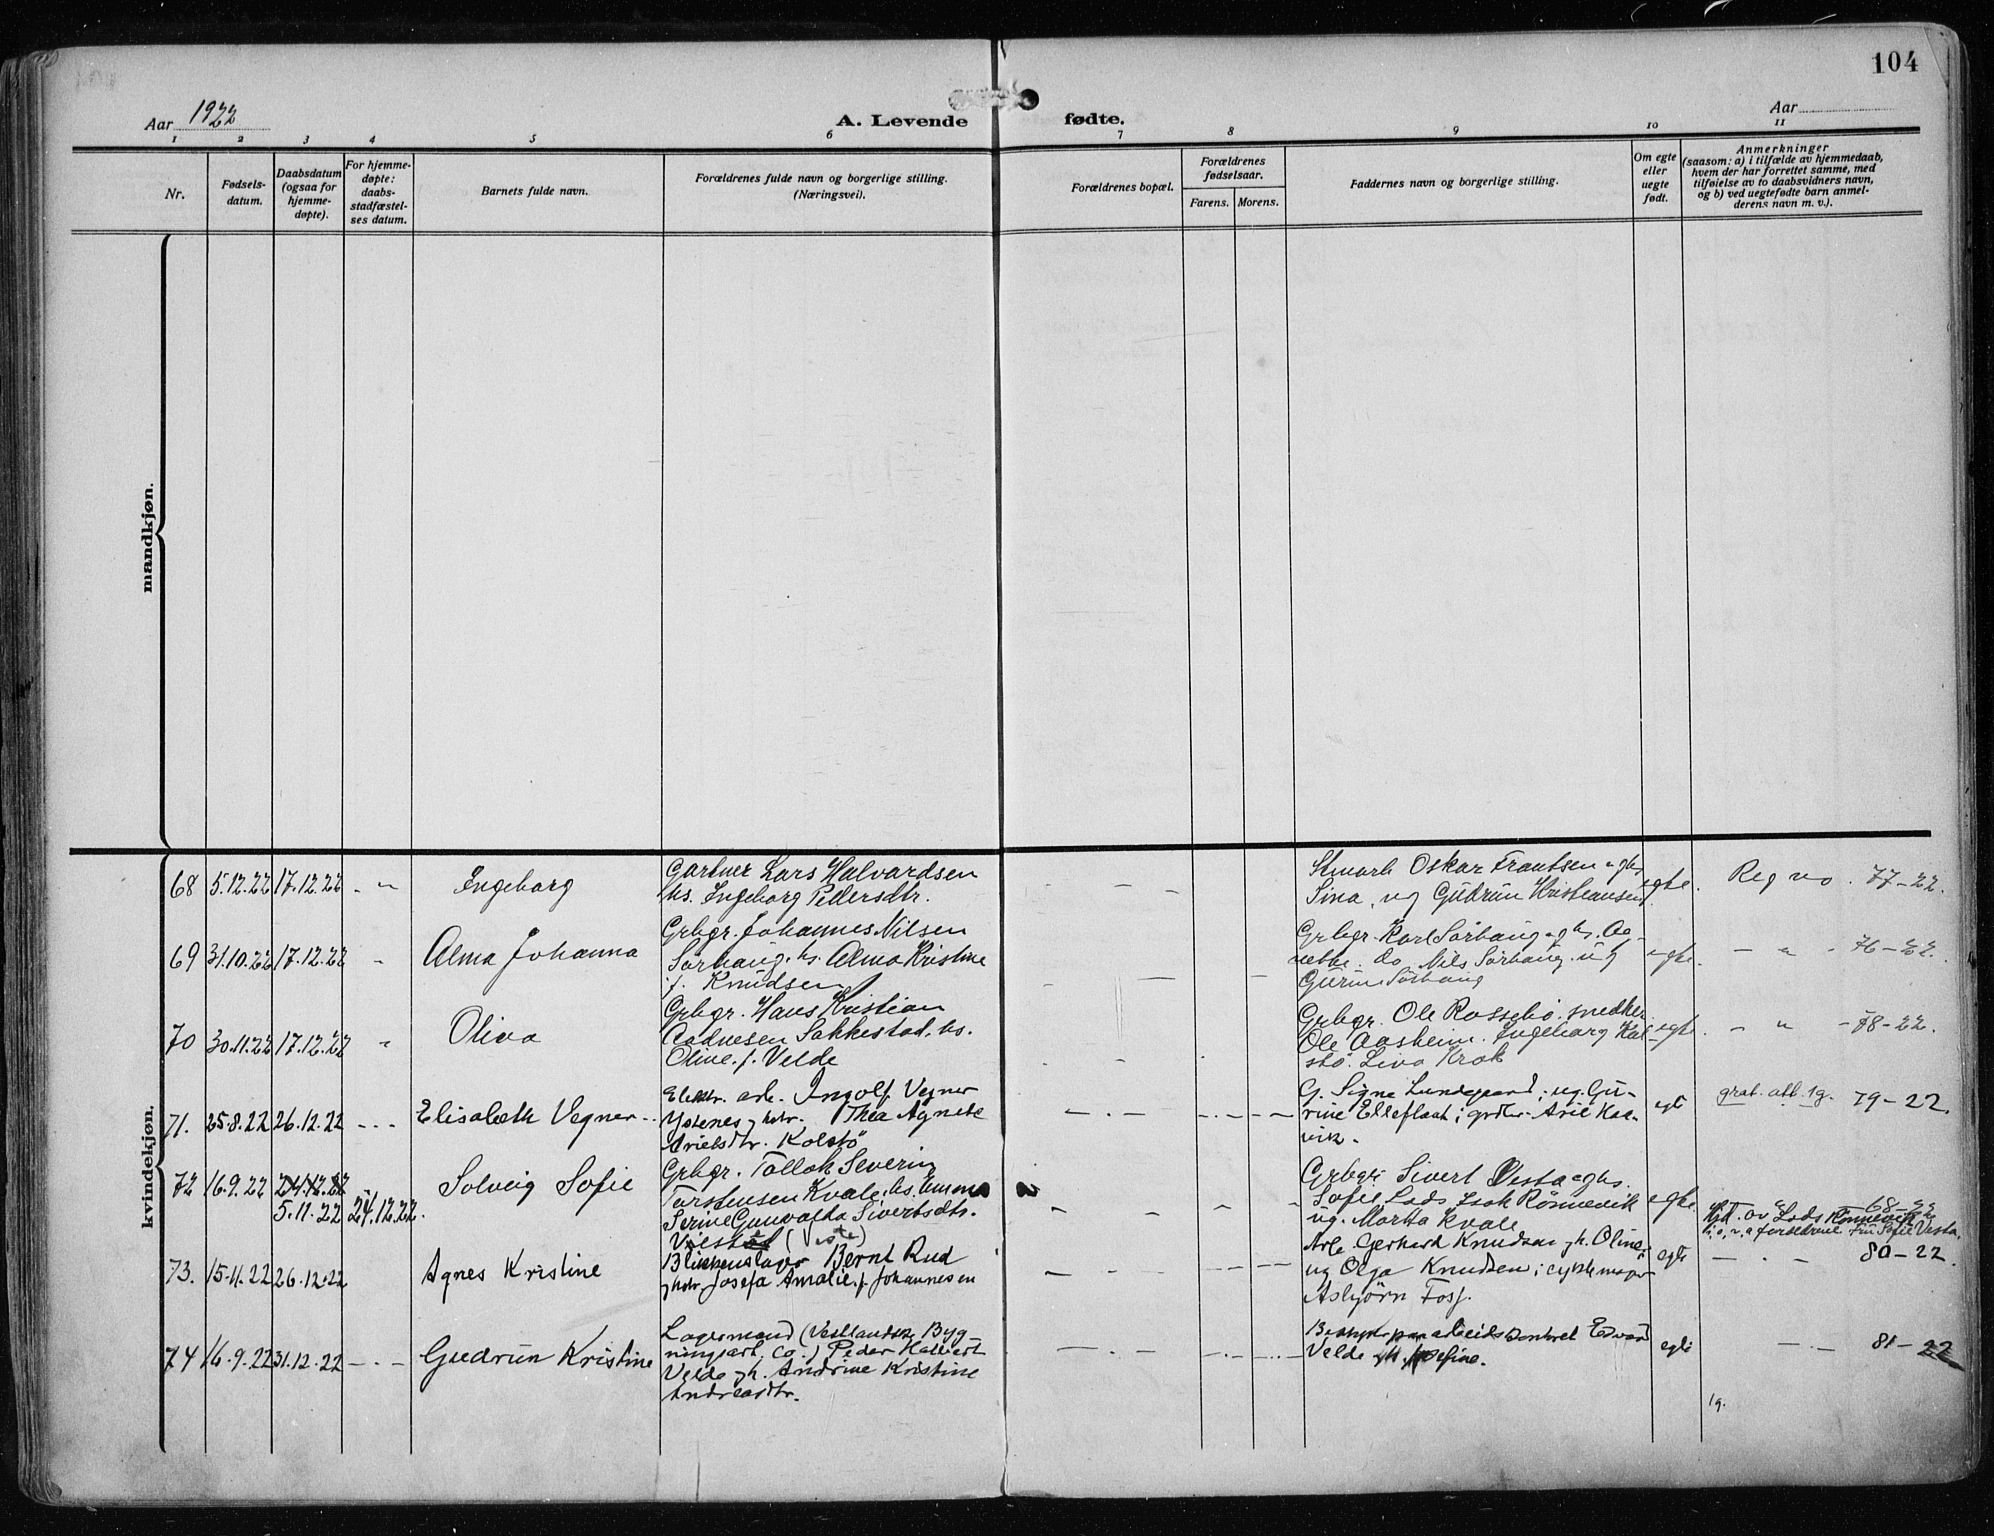 104
Aar 1922
A. Levende fødte.
Aar
1 2 3 4 5 6 7 8 9 10 11
Nr.
Fødsels-
datum.
Daabsdatum
(ogsaa for
hjemme-
døpte).
For hjemme-
døpte:
daabs-
stadfæstel-
ses datum.
Barnets fulde navn.
Forældrenes fulde navn og borgerlige stilling.
(Næringsvei).
Forældrenes bopæl.
Forældrenes
fødselsaar.
Farens. Morens.
Faddernes navn og borgerlige stilling.
Om egte
eller
uegte
født.
Anmerkninger
(saasom: a) i tilfælde av hjemmedaab,
hvem der har forrettet samme, med
tilføielse av to daabsvidners navn,
og b) ved uegtefødte barn anmel-
derens navn m. v.).
mandkjøn.
kvindekjøn.
68 5.12.22 17.12.22 - „
Ingeborg
Gartner Lars Halvardsen
hs. Ingeborg Pedersdtr.
Oskar Frantsen
Sina, ug Gudrun Kristiansen
egte.
Reg no. 77-22.
69 31.10.22 17.12.22 „
Alma Johanna
Grbgr. Johannes Nilsen
Sørhaug. hs. Alma Kristine
f. Knudsen
Grbgr. Karl Sørhaug
do Nils Sørhaug. ug
Sørhaug
egte.
- „ - 76-22.
70 30.11.22 17.12.22 „
Oliva
Grbgr. Hans Kristian
Sakkestad. hs.
Oline. f. Velde
Grbgr. Ole Rossebø. snedker
Ole Aasheim. Ingeborg Kol-
stø. Krok
egte.
- „ - 78-22.
71. 25.8.22 26.12.22 - - -
Elisabeth Vegner
Elektr. arb. Ingolf Vegner
Ystenes og hstr. Thea Agnete
Arietsdtr. Kolstø
G. Signe Lundegaard; ug. Gu-
rine
vik.
egte
grat. att. 1g. 79-22.
72 16.9.22 24.12.22
5.11.22 24.12.22.
Solveig Sofie
Grbgr. Tollak Severin
Torstensen Kvale. hs. Emma
Serine Gunvalda Sivertsdtr.
(Veste)
Grbgr. Sivert Vesta
Sofie Lods Isak Rønnevik
ug. Marta Kvale
egte.
- „ - 68-22
Lods Rønnevik
Fru Sofie Vesta.
73. 15.11.22 26.12.22
Agnes Kristine
Blikkenslager Bernt Rud
og hstr Josefa Amalie f. Johannesen
Arb. Gerhard Knudsen g.h. Oline;
ug Olga Knudsen;
Asbjørn Foss.
egte
- - 80-22.
74 16.9.22 31.12.22 - - -
Gudrun Kristine
Lagermand (Vestlandsk Byg-
ningsart. Co.) Peder
Velde g. h. Andrine Kristine
Andreasdtr.
Edvard
Velde
egte
- . - 81-22
1g.